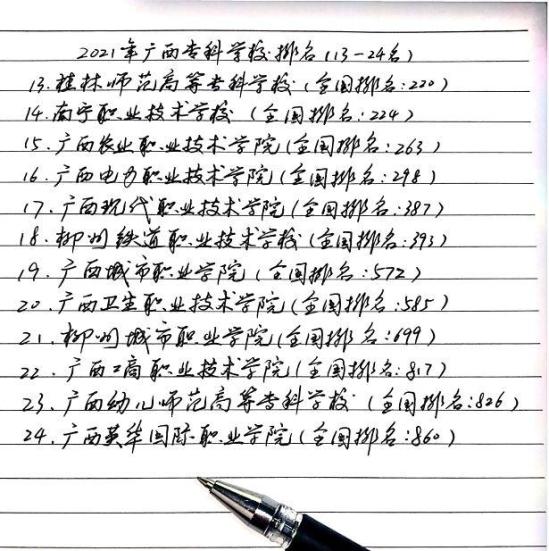 2021年广西专科学校排名(13-24名)
13.桂林师范高等专科学校(全国排名:220)
14.南宁职业技术学校(全国排名:224)
15.广西农业职业技术学院(全国排名:263)
16.广西电力职业技术学院(全国排名:298)
17.广西现代职业技术学院(全国排名:387)
18.柳州铁道职业技术学校(全国排名:393)
19.广西城市职业学院(全国排名:572)
20.广西卫生职业技术学院(全国排名:585)
21.柳州城市职业学院(全国排名:699)
22.广西工商职业技术学院(全国排名:817)
23.广西幼儿师范高等专科学校(全国排名:826)
24.广西英华国际职业学院(全国排名:860)